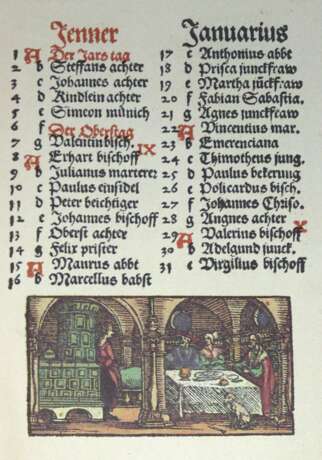 Jenner
1 A Der Jars tag
2 b Steffans achter
3 c Johannes achter
4 d Kindlein achter
5 e Simeon münich
6 f Der Oberstag
7 g Valentin bisch. IX
8 A Erhart bischoff
9 b Julianus marterer
10 c Paulus einsidel
11 d Peter beichtiger
12 e Johannes bischoff
13 f Oberst achter
14 g Felix prister
15 A Maurus abbt
16 b Marcellus babst
Januarius
17 c Anthonius abbt
18 d Prisca junckfraw
19 e Martha jückfraw
20 f Fabian Sabastia.
21 g Agnes junckfraw
22 A Vincentius mar.
23 b Emerenciana
24 c Thimotheus jung.
25 d Paulus bekerung
26 e Policardus bisch.
27 f Johannes Chriso.
28 g Angnes achter X
29 A Valerius bischoff
30 b Adelgund junck.
31 c Virgilius bischoff